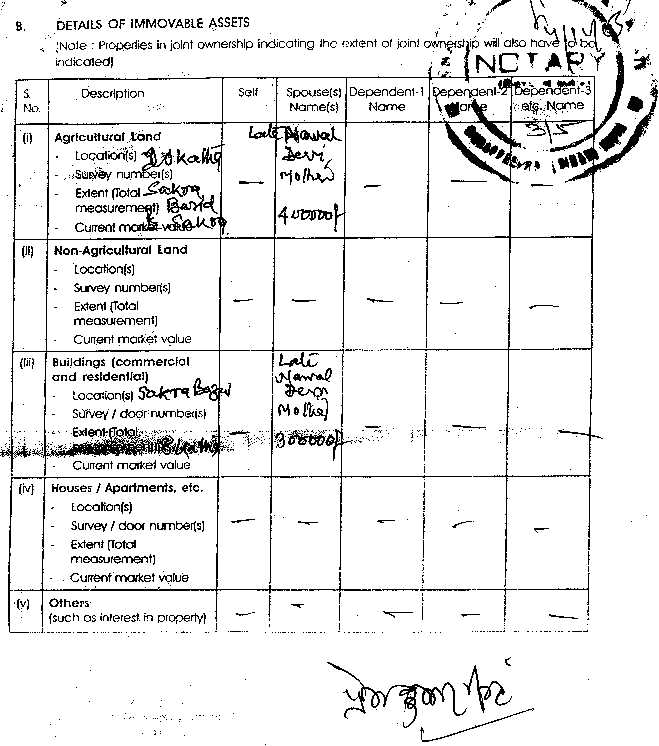 B. DETAILS OF IMMOVABLE ASSETS
(Note : Properties in joint ownership indicating the extent of joint ownership will also have to be
indicated)
NOTARY
S. No. Description Self Spouse(s) Name(s) Dependent-1 Name Dependent-2 Name Dependent-3 etc. Name
3/5
(i) Agricultural Land Late Nawal
- Location(s) Devi
- Survey number(s) Mother
- Extent (Total Sakra — — — —
measurement) 400000/-
- Current market value Sakra
(ii) Non-Agricultural Land
- Location(s)
- Survey number(s)
- Extent (Total — — — — —
measurement)
- Current market value
(iii) Buildings (commercial Late
and residential) Nawal
- Location(s) Sakra Bazar Devi
- Survey / door number(s) Mother
- Extent (Total — — — —
300000/-
- Current market value
(iv) Houses / Apartments, etc.
- Location(s)
- Survey / door number(s) — — — — —
- Extent (Total
measurement)
- Current market value
(v) Others
(such as interest in property) — — — — —